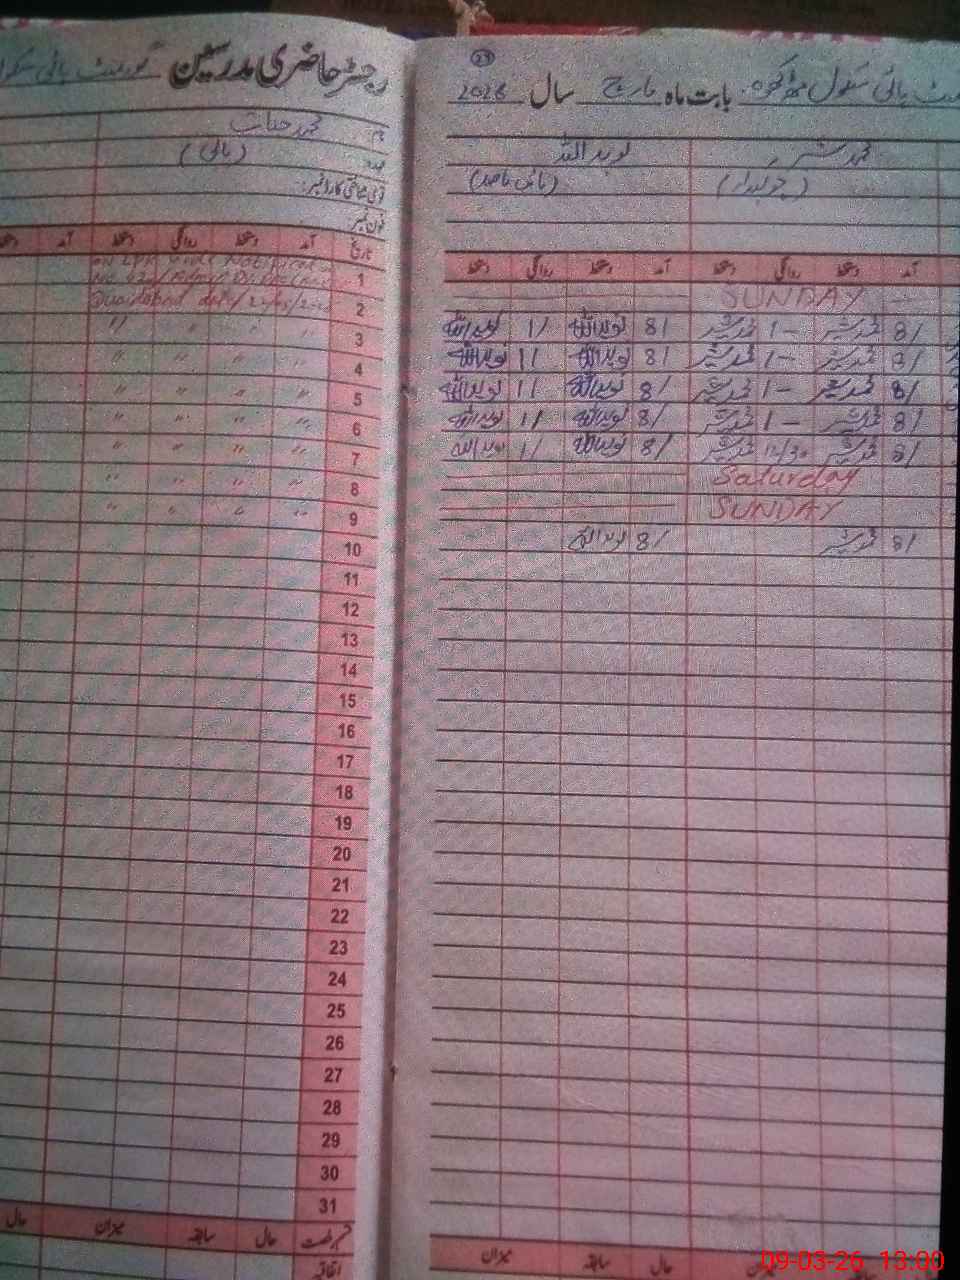 رجسٹر حاضری مدرسین گورنمنٹ ہائی سکول
نام محمد حیات
عہدہ (مالی)
قومی شناختی کارڈ نمبر:
فون نمبر
تاریخ آمد دستخط روانگی دستخط آمد دستخط
1
2
3 " " " "
4 " " " "
5 " " " "
6 " " " "
7 " " " "
8 " " " "
9 " " " "
10
11
12
13
14
15
16
17
18
19
20
21
22
23
24
25
26
27
28
29
30
31
قسم رخصت حال سابقہ میزان حال
اتفاقیہ
23
ہائی سکول بابت ماہ مارچ سال 2026
محمد بشیر نوید اللہ
(چوکیدار)
آمد دستخط روانگی دستخط آمد دستخط روانگی دستخط
SUNDAY
8/ محمد بشیر 1 محمد بشیر 8/ نوید اللہ 1/ نوید اللہ
8/ محمد بشیر 1- محمد بشیر 8/ نوید اللہ 1/ نوید اللہ
8/ محمد بشیر 1- محمد بشیر 8/ نوید اللہ 1/ نوید اللہ
8/ محمد بشیر 1- محمد بشیر 8/ نوید اللہ 1/ نوید اللہ
8/ محمد بشیر 12/30 محمد بشیر 8/ نوید اللہ 1/ نوید اللہ
Saturday
SUNDAY
8/ محمد بشیر 8/ نوید اللہ
میزان حال سابقہ میزان
09-03-26 13:00